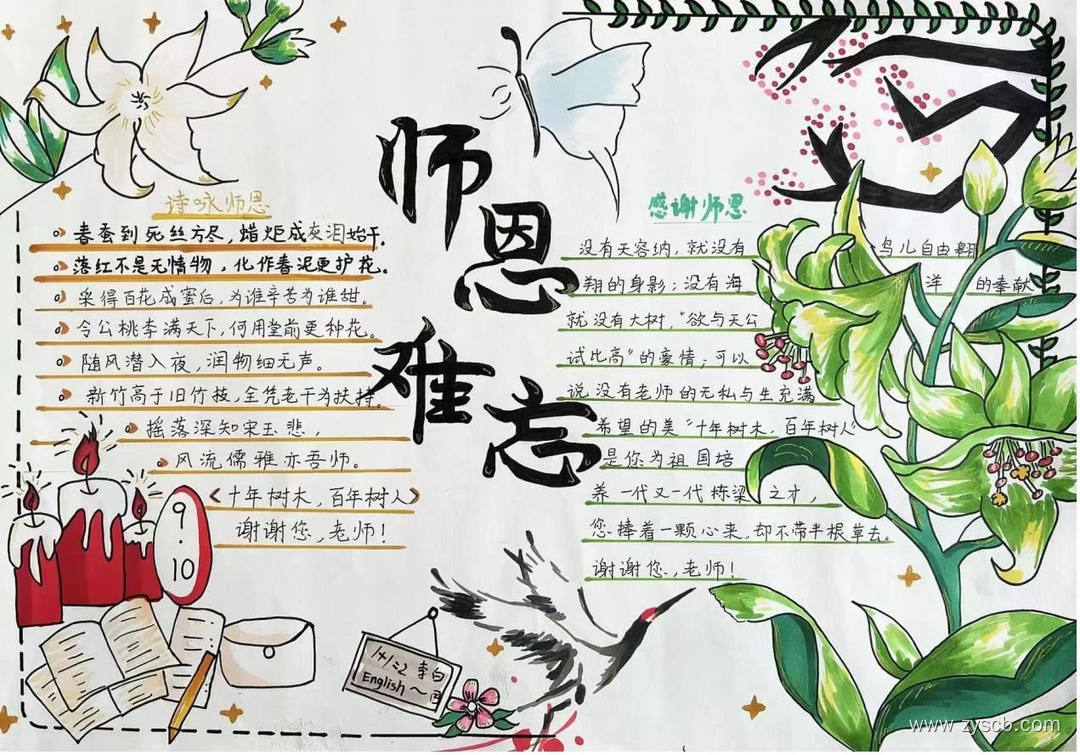 师恩难忘
诗咏师恩
春蚕到死丝方尽，蜡炬成灰泪始干。
落红不是无情物，化作春泥更护花。
采得百花成蜜后，为谁辛苦为谁甜。
令公桃李满天下，何用堂前更种花。
随风潜入夜，润物细无声。
新竹高于旧竹枝，全凭老干为扶持。
摇落深知宋玉悲，
风流儒雅亦吾师。
《十年树木，百年树人》
谢谢您，老师！
9.10
感谢师恩
没有天容纳，就没有鸟儿自由翱
翔的身影；没有海洋的奉献
就没有大树，“欲与天公
试比高”的豪情；可以
说没有老师的无私与生充满
希望的美“十年树木，百年树人”
是你为祖国培
养一代又一代栋梁之才，
您捧着一颗心来，却不带半根草去。
谢谢您，老师！
1+1=2 李白
English
www.zyscb.com